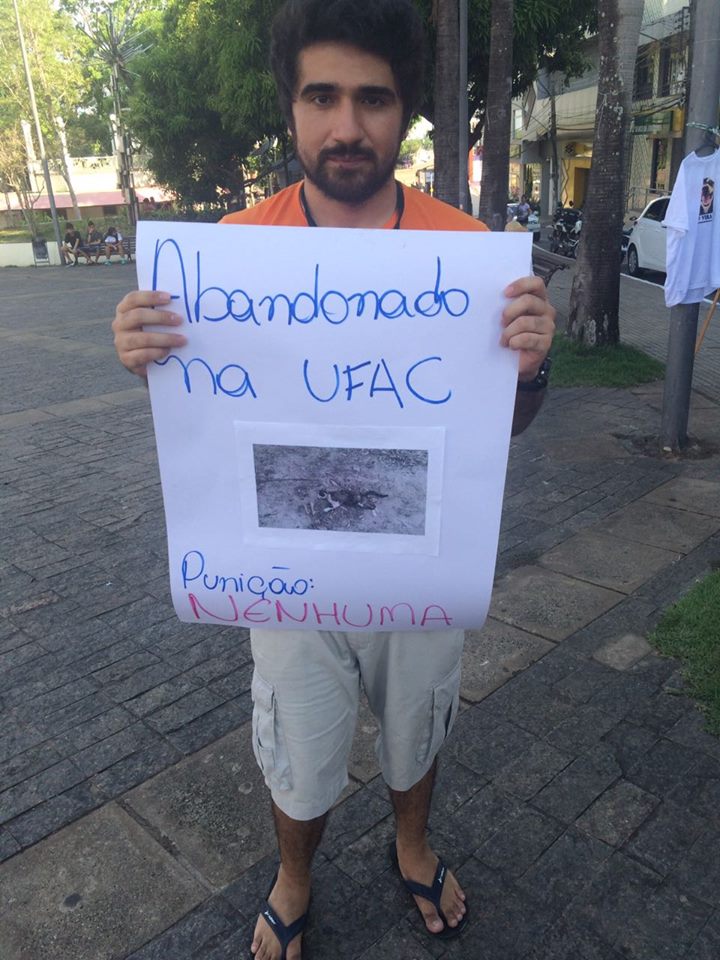 Abandonado
na UFAC
Punição:
NENHUMA